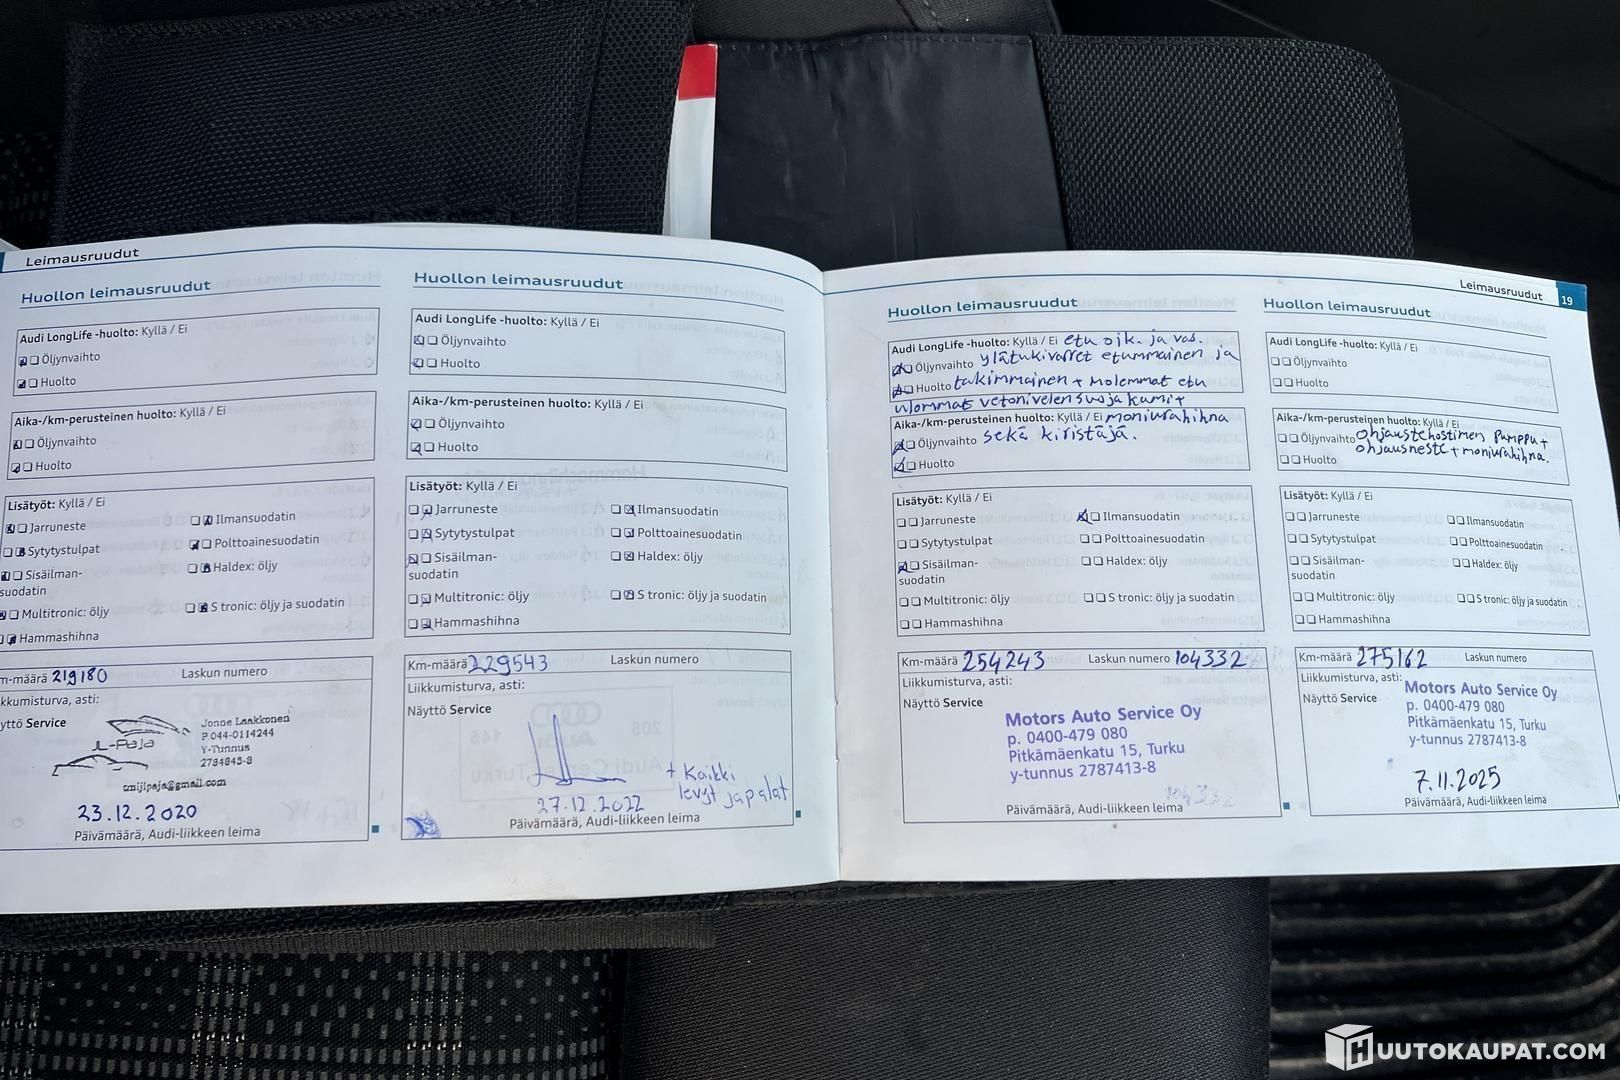 Leimausruudut
Huollon leimausruudut
Audi LongLife -huolto: Kyllä / Ei
Öljynvaihto
Huolto
Aika-/km-perusteinen huolto: Kyllä / Ei
Öljynvaihto
Huolto
Lisätyöt: Kyllä / Ei
Jarruneste
Ilmansuodatin
Sytytystulpat
Polttoainesuodatin
Sisäilman-
suodatin
Haldex: öljy
Multitronic: öljy
S tronic: öljy ja suodatin
Hammashihna
m-määrä 219180
Laskun numero
kkumisturva, asti:
yttö Service
JL-Paja
Jonne Laakkonen
P.044-0114244
Y-Tunnus
23.12.2020
Päivämäärä, Audi-liikkeen leima
Huollon leimausruudut
Audi LongLife -huolto: Kyllä / Ei
Öljynvaihto
Huolto
Aika-/km-perusteinen huolto: Kyllä / Ei
Öljynvaihto
Huolto
Lisätyöt: Kyllä / Ei
Jarruneste
Ilmansuodatin
Sytytystulpat
Polttoainesuodatin
Sisäilman-
suodatin
Haldex: öljy
Multitronic: öljy
S tronic: öljy ja suodatin
Hammashihna
Km-määrä 229543
Laskun numero
Liikkumisturva, asti:
Näyttö Service
+ Kaikki
levyt ja palat
27.12.2022
Päivämäärä, Audi-liikkeen leima
Huollon leimausruudut
Audi LongLife -huolto: Kyllä / Ei etu oik. ja vas.
Öljynvaihto ylätukivarret etummainen ja
Huolto takimmainen + molemmat etu
ulommat vetonivelensuojakumit
Aika-/km-perusteinen huolto: Kyllä / Ei moniurahihna
Öljynvaihto sekä kiristäjä.
Huolto
Lisätyöt: Kyllä / Ei
Jarruneste
Ilmansuodatin
Sytytystulpat
Polttoainesuodatin
Sisäilman-
suodatin
Haldex: öljy
Multitronic: öljy
S tronic: öljy ja suodatin
Hammashihna
Km-määrä 254243
Laskun numero 104332
Liikkumisturva, asti:
Näyttö Service
Motors Auto Service Oy
p. 0400-479 080
Pitkämäenkatu 15, Turku
y-tunnus 2787413-8
Päivämäärä, Audi-liikkeen leima
Leimausruudut 19
Huollon leimausruudut
Audi LongLife -huolto: Kyllä / Ei
Öljynvaihto
Huolto
Aika-/km-perusteinen huolto: Kyllä / Ei
Öljynvaihto ohjaustehostimen pumppu +
ohjausneste + moniurahihna.
Huolto
Lisätyöt: Kyllä / Ei
Jarruneste
Ilmansuodatin
Sytytystulpat
Polttoainesuodatin
Sisäilman-
suodatin
Haldex: öljy
Multitronic: öljy
S tronic: öljy ja suodatin
Hammashihna
Km-määrä 275162
Laskun numero
Liikkumisturva, asti:
Näyttö Service
Motors Auto Service Oy
p. 0400-479 080
Pitkämäenkatu 15, Turku
y-tunnus 2787413-8
7.11.2025
Päivämäärä, Audi-liikkeen leima
HUUTOKAUPAT.COM